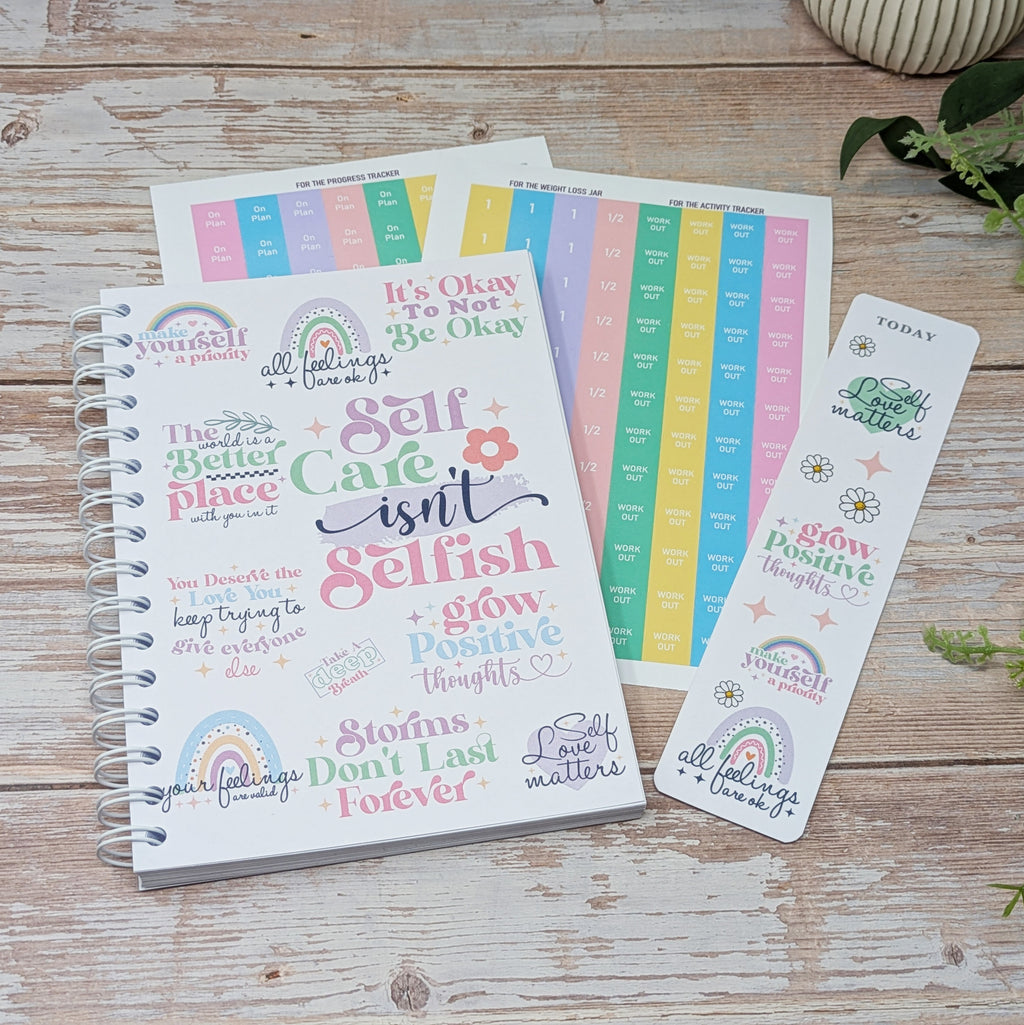 FOR THE PROGRESS TRACKER
On Plan On Plan On Plan On Plan On Plan On Plan
On Plan On Plan On Plan On Plan On Plan
On
FOR THE WEIGHT LOSS JAR
FOR THE ACTIVITY TRACKER
1 1 1 1/2 WORK OUT WORK OUT WORK OUT WORK OUT
1 1 1 1/2 WORK OUT WORK OUT WORK OUT WORK OUT
1 1/2 WORK OUT WORK OUT WORK OUT WORK OUT
1 1/2 WORK OUT WORK OUT WORK OUT WORK OUT
1 1/2 WORK OUT WORK OUT WORK OUT WORK OUT
1/2 WORK OUT WORK OUT WORK OUT WORK OUT
1/2 WORK OUT WORK OUT WORK OUT WORK OUT
WORK OUT WORK OUT WORK OUT WORK OUT
WORK OUT WORK OUT WORK OUT WORK OUT
WORK OUT WORK OUT WORK OUT
WORK OUT WORK OUT WORK OUT
WORK OUT WORK OUT WORK OUT
make
yourself
a priority
all feelings
are ok
It's Okay
To Not
Be Okay
The
world is a
Better
place
with you in it
Self
Care
isn't
Selfish
You Deserve the
Love You
keep trying to
give everyone
else
Take A
deep
Breath
grow
Positive
thoughts
your feelings
are valid
Storms
Don't Last
Forever
Self
Love
matters
TODAY
Self
Love
matters
grow
Positive
thoughts
make
yourself
a priority
all feelings
are ok